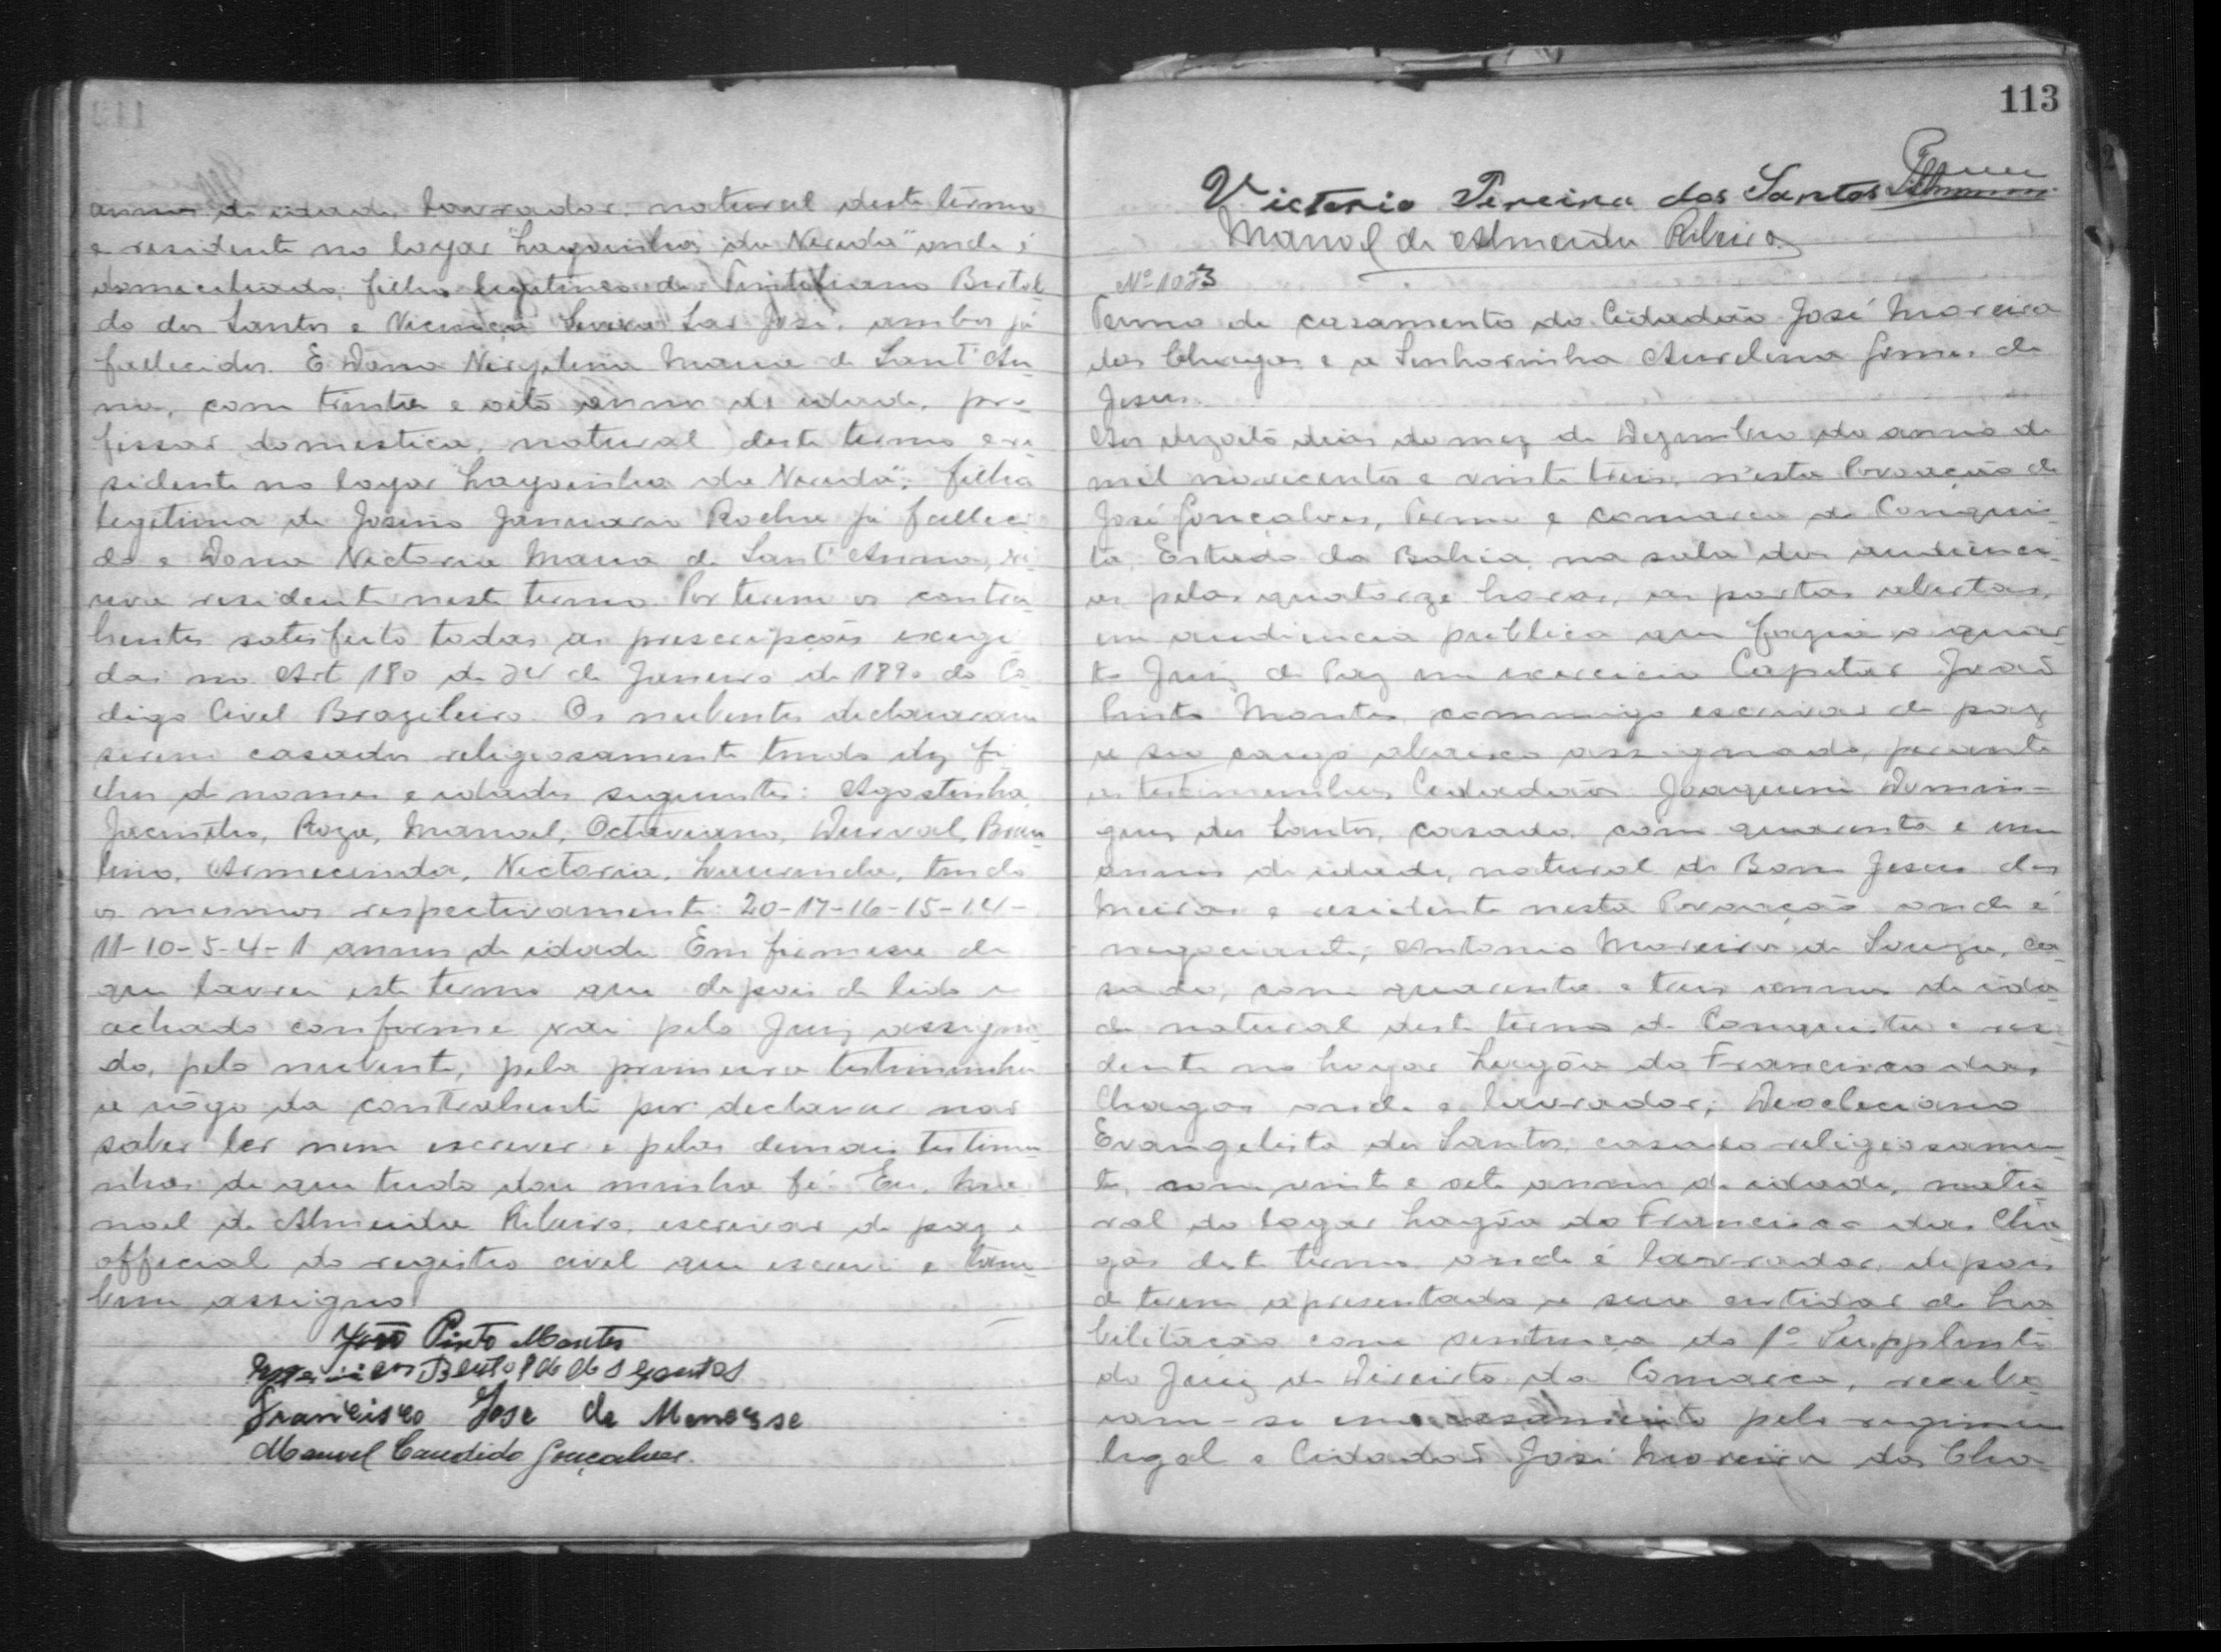 annos de idade, lavrador, natural deste termo
e residente no logar "Lagoinha da Vereda" onde é
domeciliado, filho legitimo de Bertol-
do dos Santos e São José, ambos já
fallecidos. E Dona Maria de Sant'An-
na, com trinta e oito annos de idade, pro-
fissão domestica, natural deste termo e re-
sidente no logar Lagoinha da Vereda", filha
legitima de Josino Januario Rocha já falleci-
do e Dona Victoria Maria de Sant'Anna, vi-
uva residente neste termo. Por terem os contra-
hentes satisfeito todas as prescripções exigi-
das no Art 180 de 24 de Janeiro de 1890 do Co-
digo Civel Brazileiro. Os nubentes declararam
serem casados religiosamente tendo dez fi-
lhos de nomes e idades seguintes: Agostinho,
Jacintho, Roza, Manoel, Octaviano, Durval, Brau-
lino, Armecinda, Victoria, Laurinda, tendo
os mesmos respectivamente 20-17-16-15-14-
11-10-5-4-1 annos de idade. Em firmesa do
que lavrei este termo que depois de lido e
achado conforme vai pelo Juiz assigna-
do, pelo nubente, pela primeira testimunha
a rôgo da contrahente por declarar não
saber ler nem escrever e pelas demais testimu-
nhas de que tudo dou minha fé. Eu, Ma-
noel de Almeida Ribeiro, escrivão de paz e
official do registro civel que escrevi e tam-
bem assigno.
João Pinto Montes
Bertoldo dos Santos
Francisco Jose de Menezse
Manoel Candido Gonçalves.
113
Victorio Pereira dos Santos
Manoel de Almeida Ribeiro
Nº 1023
Termo de casamento do Cidadão José Moreira
das Chagas e a Senhorinha Aurelina Gomes de
Jesus.
Aos dezoito dias do mez de Dezembro do anno de
mil novecentos e vinte treis, n'esta Povoação de
José Gonçalves, Termo e comarca de Conquis-
ta, Estado da Bahia, na sala das audienci-
as, pelas quatorze horas, as portas abertas,
em audiencia publica que fazia o quar-
to Juiz de Paz em exercicio Capitão João
Pinto Montes, commigo escrivão de paz
a seu cargo abaixo assignado, perante
as testimunhas Cidadãos Joaquim Domin-
gues dos Santos, casado, com quarenta e um
annos de idade, natural de Bom Jesus dos
Meiras e residente nesta Povoação onde é
negociante; Antonio Moreira de Souza, ca-
sado, com quarenta e treis annos de ida-
de natural deste termo de Conquista e resi-
dente no logar Lagôa do Francisco das
Chagas onde é lavrador; Deocleciano
Evangelista dos Santos, casado religiosamen-
te, com vinte e sete annos de idade, natu-
ral do logar Lagôa do Francisco das Cha-
gas deste termo onde é lavrador, depois
de terem apresentado a sua certidão de ha-
bilitação com sentença do 1º Supplente
do Juiz de Direito da Comarca, recebe-
ram-se em casamento pelo regimen
legal o Cidadão José Moreira das Cha-